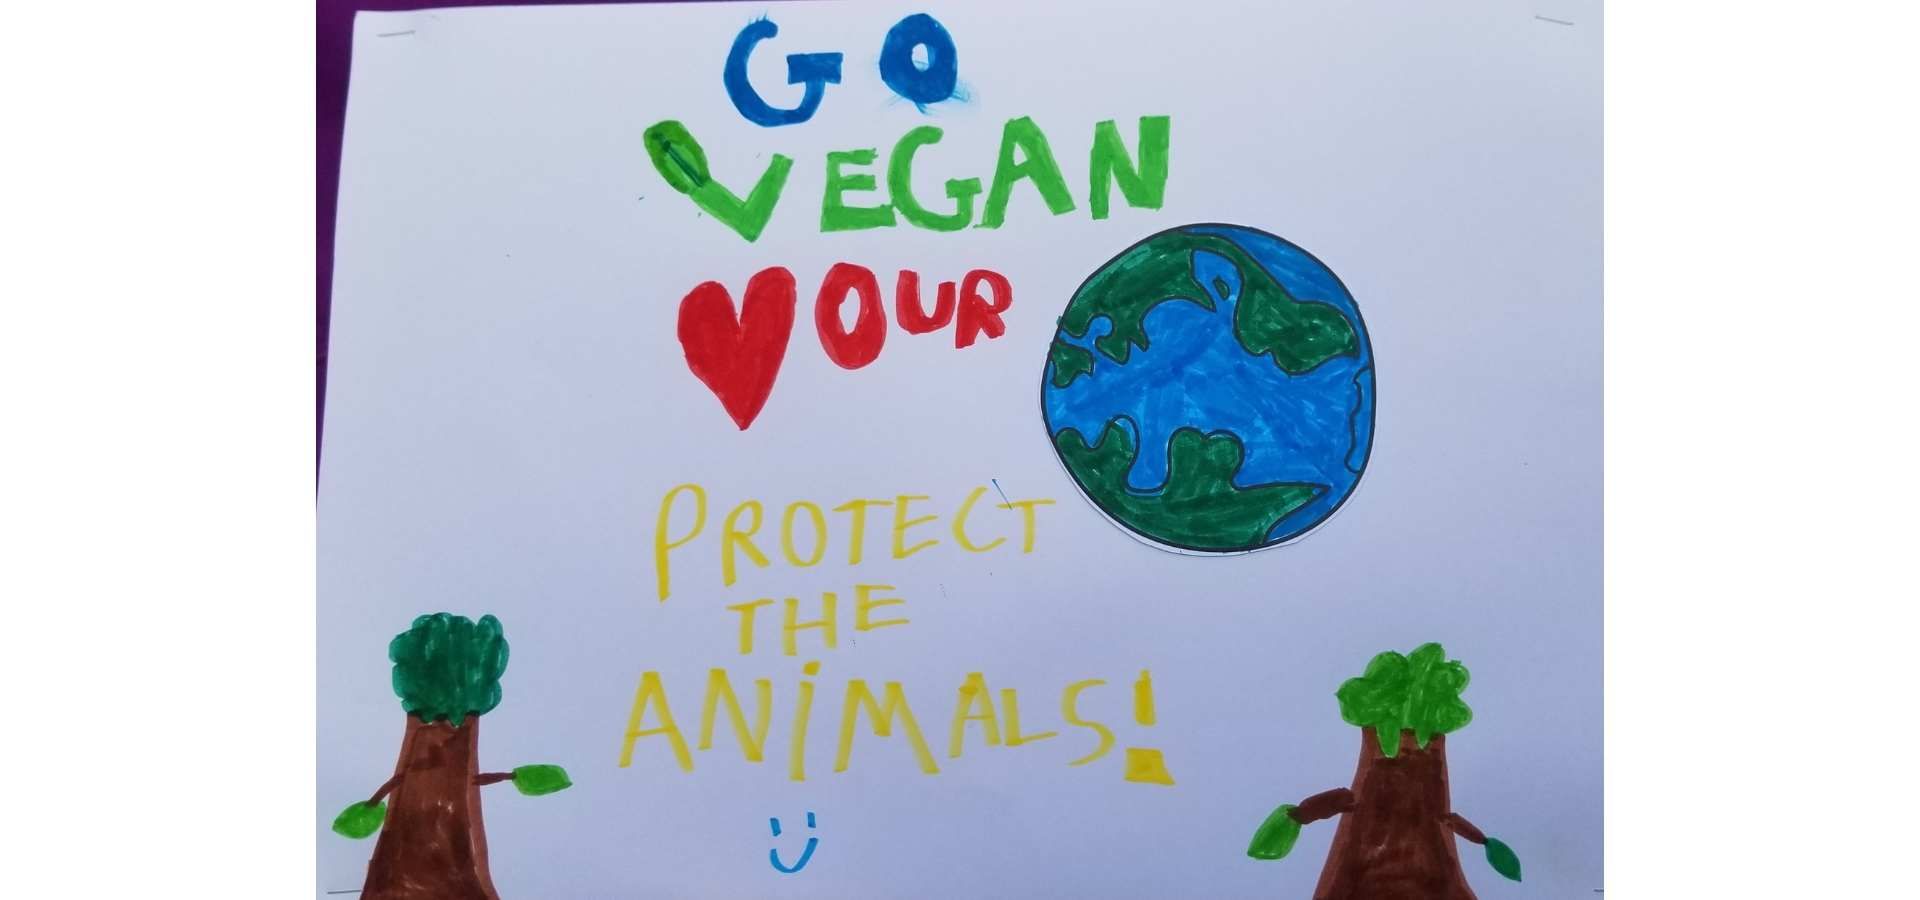 GO
VEGAN
OUR
PROTECT
THE
ANiMALS!